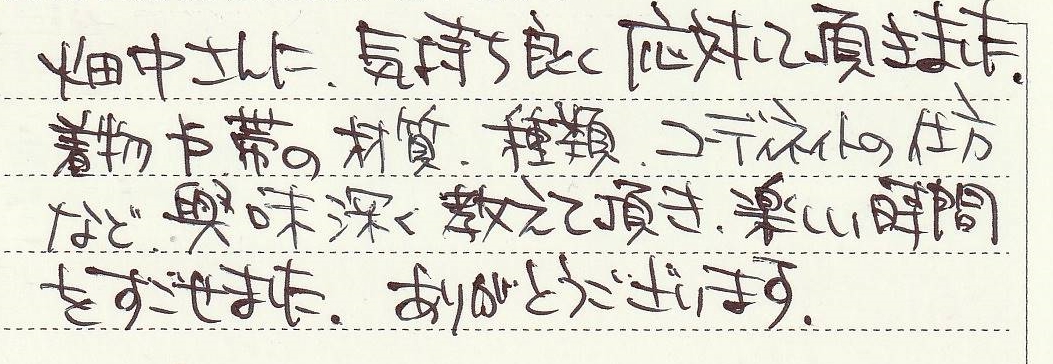 畑中さんに、気持ち良く応対して頂きました。
着物や帯の材質、種類、コーディネイトの仕方
など、興味深く教えて頂き、楽しい時間
をすごせました。ありがとうございます。